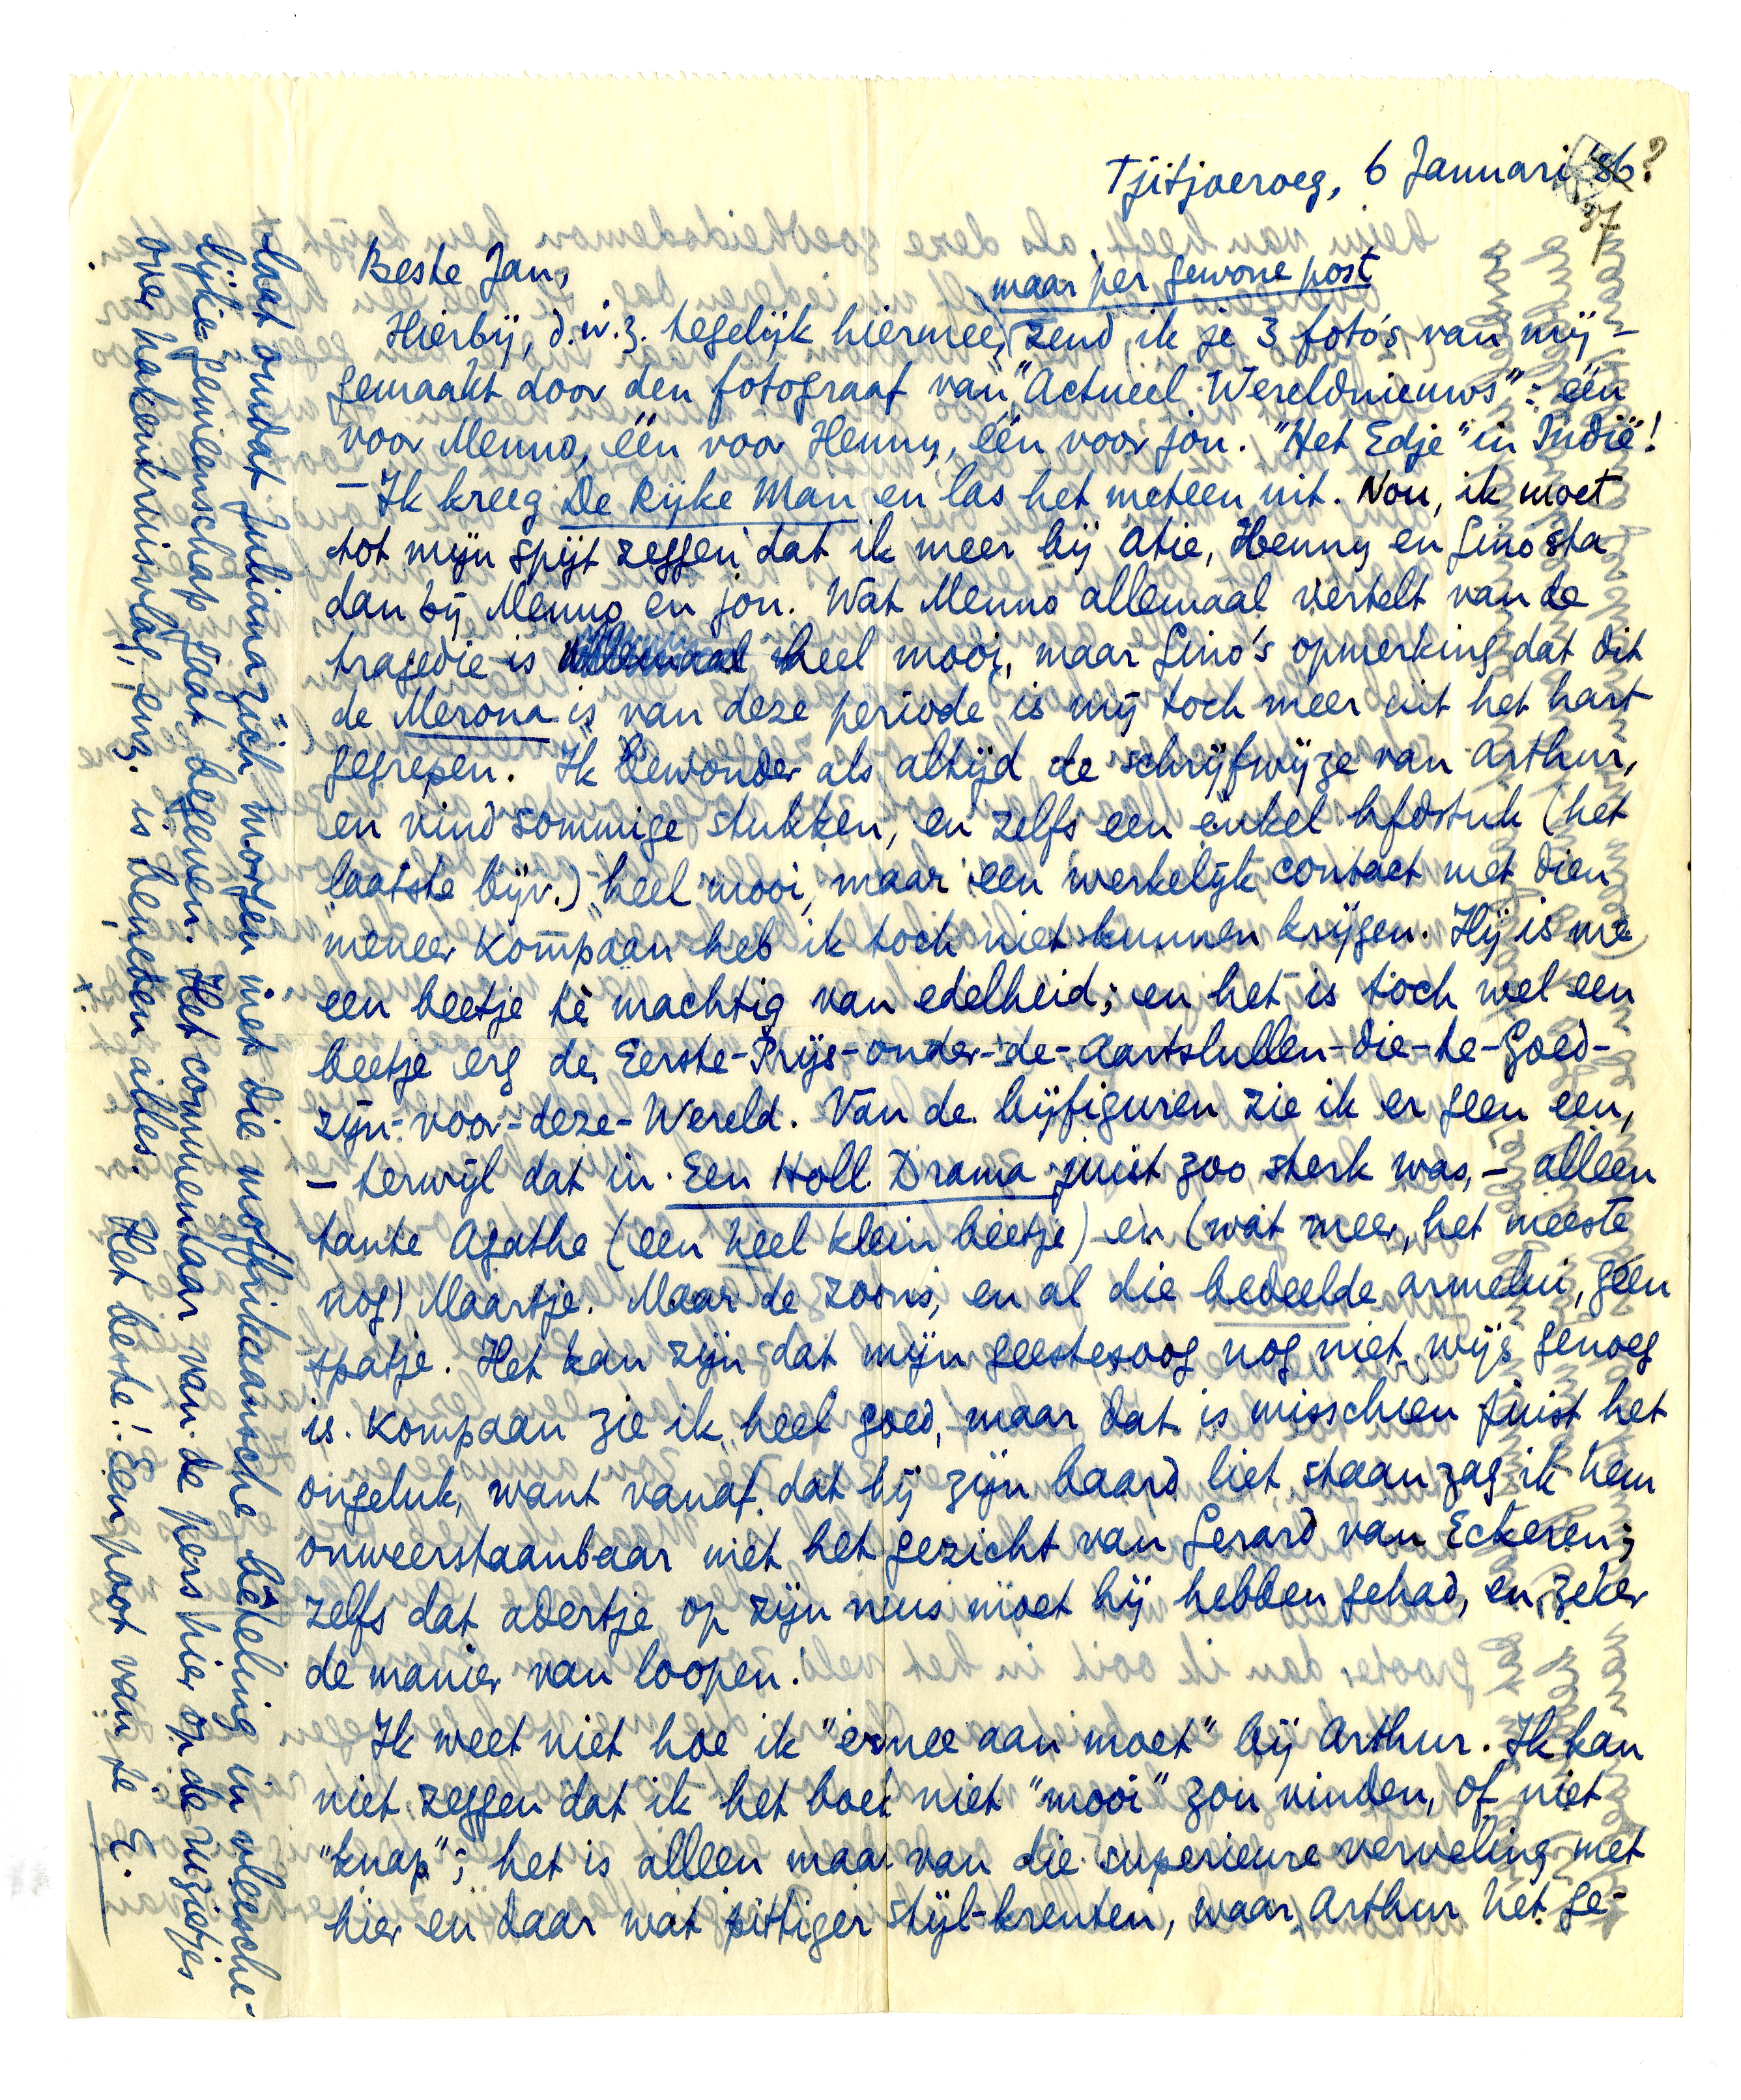 Tjitjoeroeg, 6 Januari '36?
37
Beste Jan,
maar per gewone post
Hierbij, d.w.z. tegelijk hiermee, zend ik je 3 foto's van mij –
gemaakt door den fotograaf van "Actueel Wereldnieuws": één
voor Menno, één voor Henny, één voor jou. "Het Edje" in Indië!
– Ik kreeg De Rijke Man en las het meteen uit. Nou, ik moet
tot mijn spijt zeggen dat ik meer bij Atie, Henny en Gino sta
dan bij Menno en jou. Wat Menno allemaal vertelt van de
tragedie is allemaal heel mooi, maar Gino's opmerking dat dit
de Merona is van deze periode is mij toch meer uit het hart
gegrepen. Ik bewonder als altijd de schrijfwijze van Arthur,
en vind sommige stukken, en zelfs een enkel hfdstuk (het
laatste bijv.) heel mooi, maar een werkelijk contact met dien
meneer Kompaan heb ik toch niet kunnen krijgen. Hij is me
een beetje té machtig van edelheid; en het is toch wel een
beetje erg de Eerste-Prijs-onder-de-Aartslullen-die-te-Goed-
zijn-voor-deze-Wereld. Van de bijfiguren zie ik er geen een,
– terwijl dat in Een Holl. Drama juist zoo sterk was, – alleen
tante Agathe (een heel klein beetje) en (wat meer, het meeste
nog) Maartje. Maar de zoons, en al die bedeelde armelui, geen
spatje. Het kan zijn dat mijn geestesoog nog niet wijs genoeg
is. Kompaan zie ik heel goed, maar dat is misschien juist het
ongeluk, want vanaf dat hij zijn baard liet staan zag ik hem
onweerstaanbaar met het gezicht van Gerard van Eckeren;
zelfs dat adertje op zijn neus moet hij hebben gehad, en zeker
de manier van loopen!
Ik weet niet hoe ik "ermee aan moet" bij Arthur. Ik kan
niet zeggen dat ik het boek niet "mooi" zou vinden, of niet
"knap"; het is alleen maar van die superieure verveling met
hier en daar wat pittiger stijl-krenten, waar Arthur het ge-
staat omdat Juliana zich morgen met die moffrikaansche bieteling in vleesche-
lijke gemeenschap gaat begeven. Het commentaar van de pers hier op de ruzietjes
over hakenkruisvlag, enz. is beneden alles. Het beste! Een poot van je E.